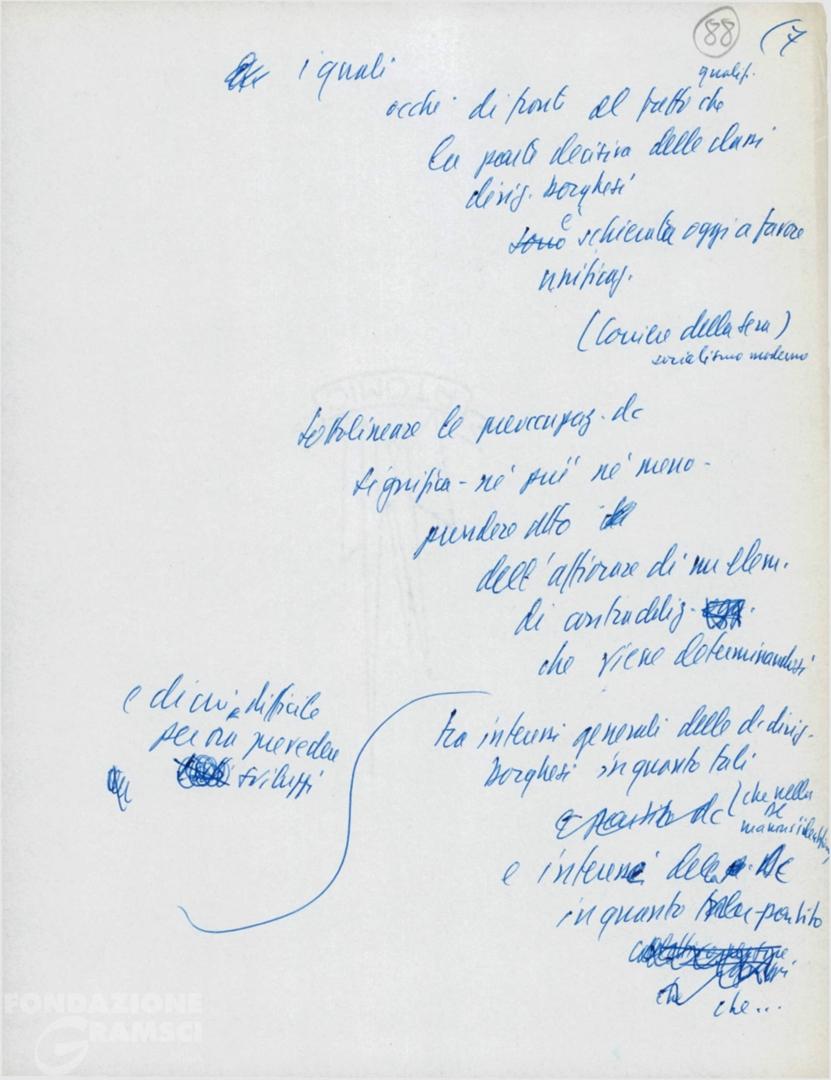 88 (7
i quali
qualif.
occhi di fronte al fatto che
la parte decisiva delle classi
dirig. borghesi
è
sono schierata oggi a favore
unificaz.
(Corriere della Sera)
socialismo moderno
Sottolineare le preoccupaz. dc
significa - né più né meno -
prendere atto
dell'affiorare di un elem.
di contraddiz.
che viene determinandosi
e di cui è difficile
per ora prevedere
sviluppi
tra interessi generali delle cl. dirig.
borghesi in quanto tali
e partito dc (che nella
DC
e interessi della DC
in quanto partito
che
che...
FONDAZIONE
GRAMSCI